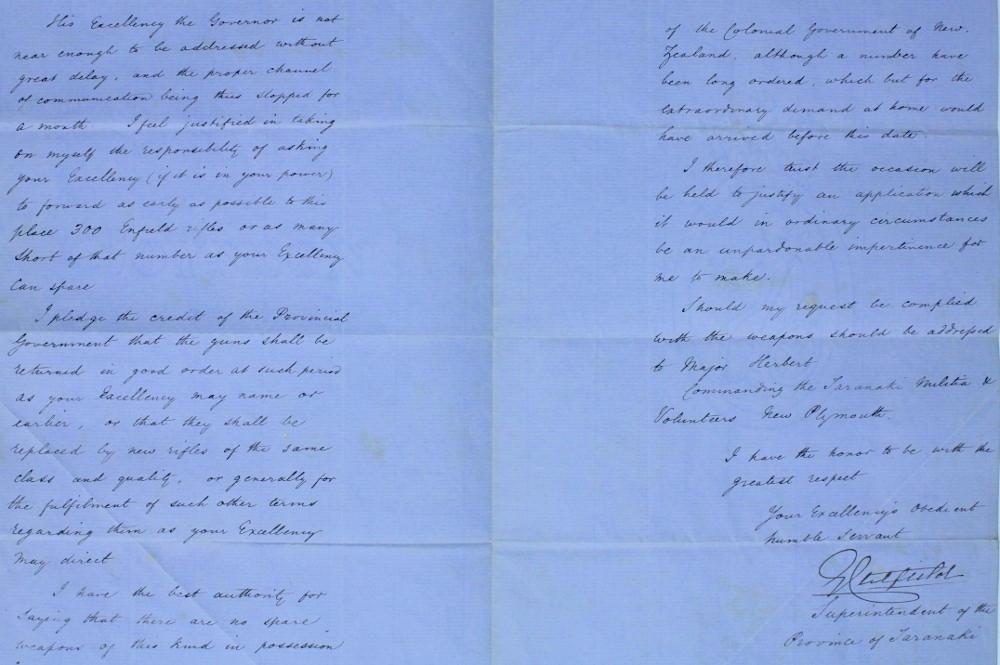 His Excellency the Governor is not
near enough to be addressed without
great delay, and the proper channel
of communication being thus stopped for
a month I feel justified in taking
on myself the responsibility of asking
your Excellency (if it is in your power)
to forward as early as possible to this
place 300 Enfield rifles or as many
short of that number as your Excellency
can spare
I pledge the credit of the Provincial
Government that the guns shall be
returned in good order at such period
as your Excellency may name or
earlier, or that they shall be
replaced by new rifles of the same
class and quality, or generally for
the fulfilment of such other terms
regarding them as your Excellency
may direct
I have the best authority for
saying that there are no spare
weapons of this kind in possession
of the Colonial Government of New.
Zealand, although a number have
been long ordered, which but for the
extraordinary demand at home would
have arrived before this date.
I therefore trust the occasion will
be held to justify an application which
it would in ordinary circumstances
be an unpardonable impertinence for
me to make.
Should my request be complied
with the weapons should be addressed
to Major Herbert
Commanding the Taranaki Militia &
Volunteers New Plymouth.
I have the honor to be with the
greatest respect
Your Excellency's Obedient
humble Servant
Superintendent of the
Province of Taranaki